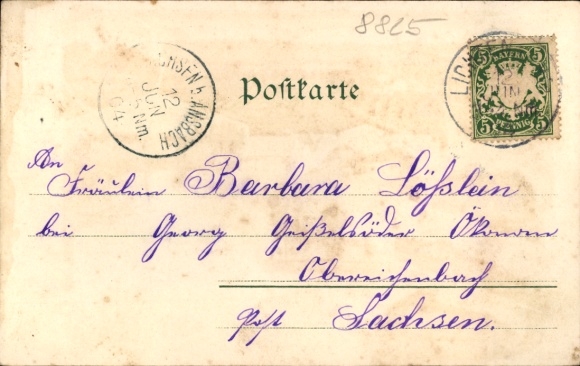 8825
SACHSEN b. ANSBACH
12
JUN
Nm.
04
Postkarte
BAYERN
5 5
5 5
An
Fräulein Barbara Lößlein
bei Georg Geißelsöder Ökonom
Obereichenbach
Post Sachsen.